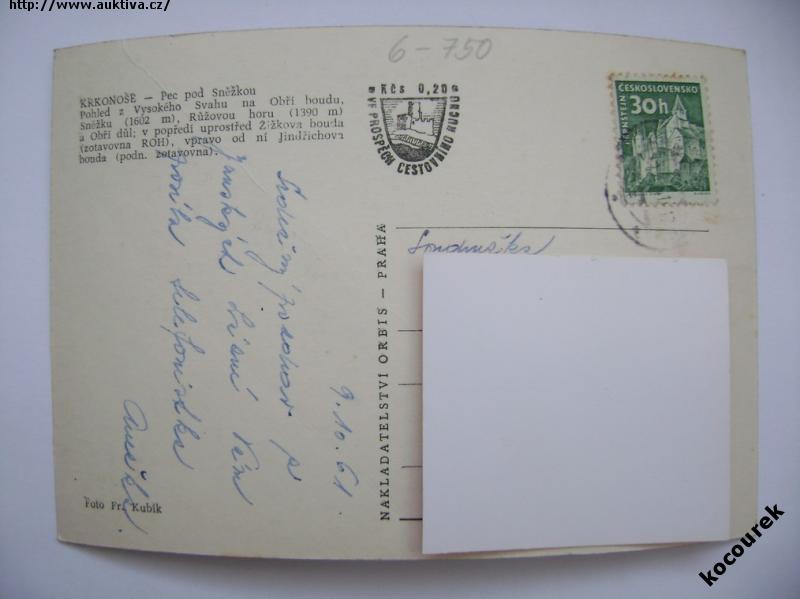 http://www.auktiva.cz/
6-750
KRKONOŠE — Pec pod Sněžkou
Pohled z Vysokého Svahu na Obří boudu,
Sněžku (1602 m), Růžovou horu (1390 m)
a Obří důl; v popředí uprostřed Žižkova bouda
(zotavovna ROH), vpravo od ní Jindřichova
bouda (podn. zotavovna).
Kčs 0,20
VE PROSPĚCH CESTOVNÍHO RUCHU
ČESKOSLOVENSKO
30h
Srdečný pozdrav z
lázní Vám
telefonistka
9. 10. 61
NAKLADATELSTVÍ ORBIS — PRAHA
Foto Fr. Kubík
kocourek